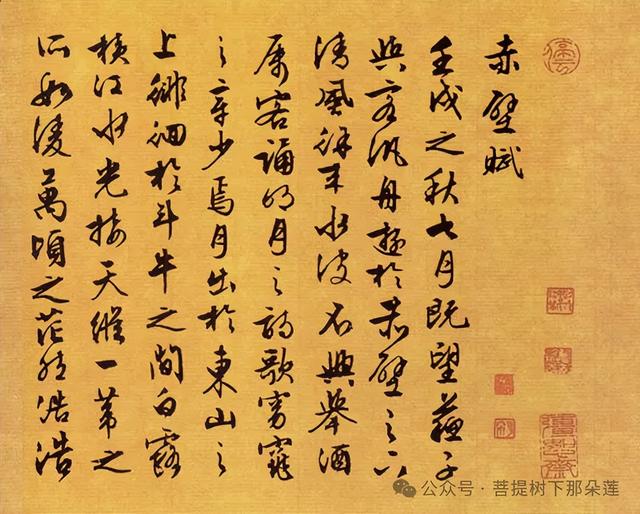 赤壁賦
壬戌之秋七月既望蘇子
與客汎舟遊於赤壁之下
清風徐來水波不興舉酒
屬客誦明月之詩歌窈窕
之章少焉月出於東山之
上徘徊於斗牛之間白露
橫江水光接天縱一葦之
所如淩萬頃之茫然浩浩
公众号·菩提树下那朵莲